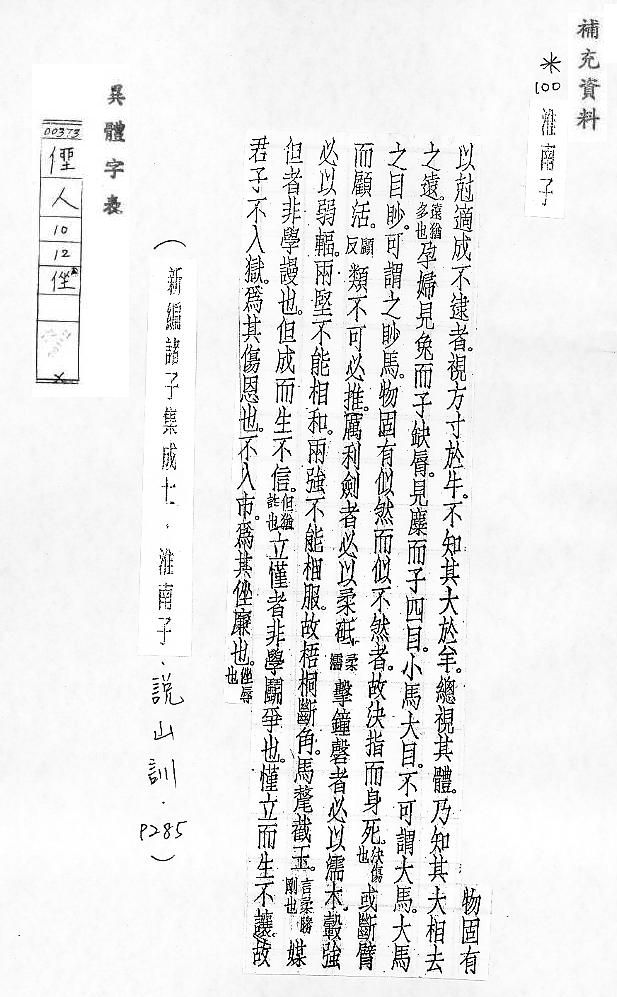 補充資料
*100 淮南子
物固有
以尅適成不逮者。視方寸於牛。不知其大於羊。總視其體。乃知其大相去
之遠。遠猶多也孕婦見兔而子缺脣。見麋而子四目。小馬大目。不可謂大馬。大馬
之目眇。可謂之眇馬。物固有似然而似不然者。故決指而身死。決傷也或斷臂
而顧活。顧反類不可必推。厲利劍者必以柔砥。柔濡擊鐘磬者必以濡木。轂強
必以弱輻。兩堅不能相和。兩強不能相服。故梧桐斷角。馬氂截玉。言柔勝剛也媒
但者非學謾也。但成而生不信。但猶詐也立慬者非學鬭爭也。慬立而生不讓。故
君子不入獄。爲其傷恩也。不入市。爲其侳廉也。侳辱也
(新編諸子集成七.淮南子.說山訓.P285)
異體字表
00373
人
10
12
侳